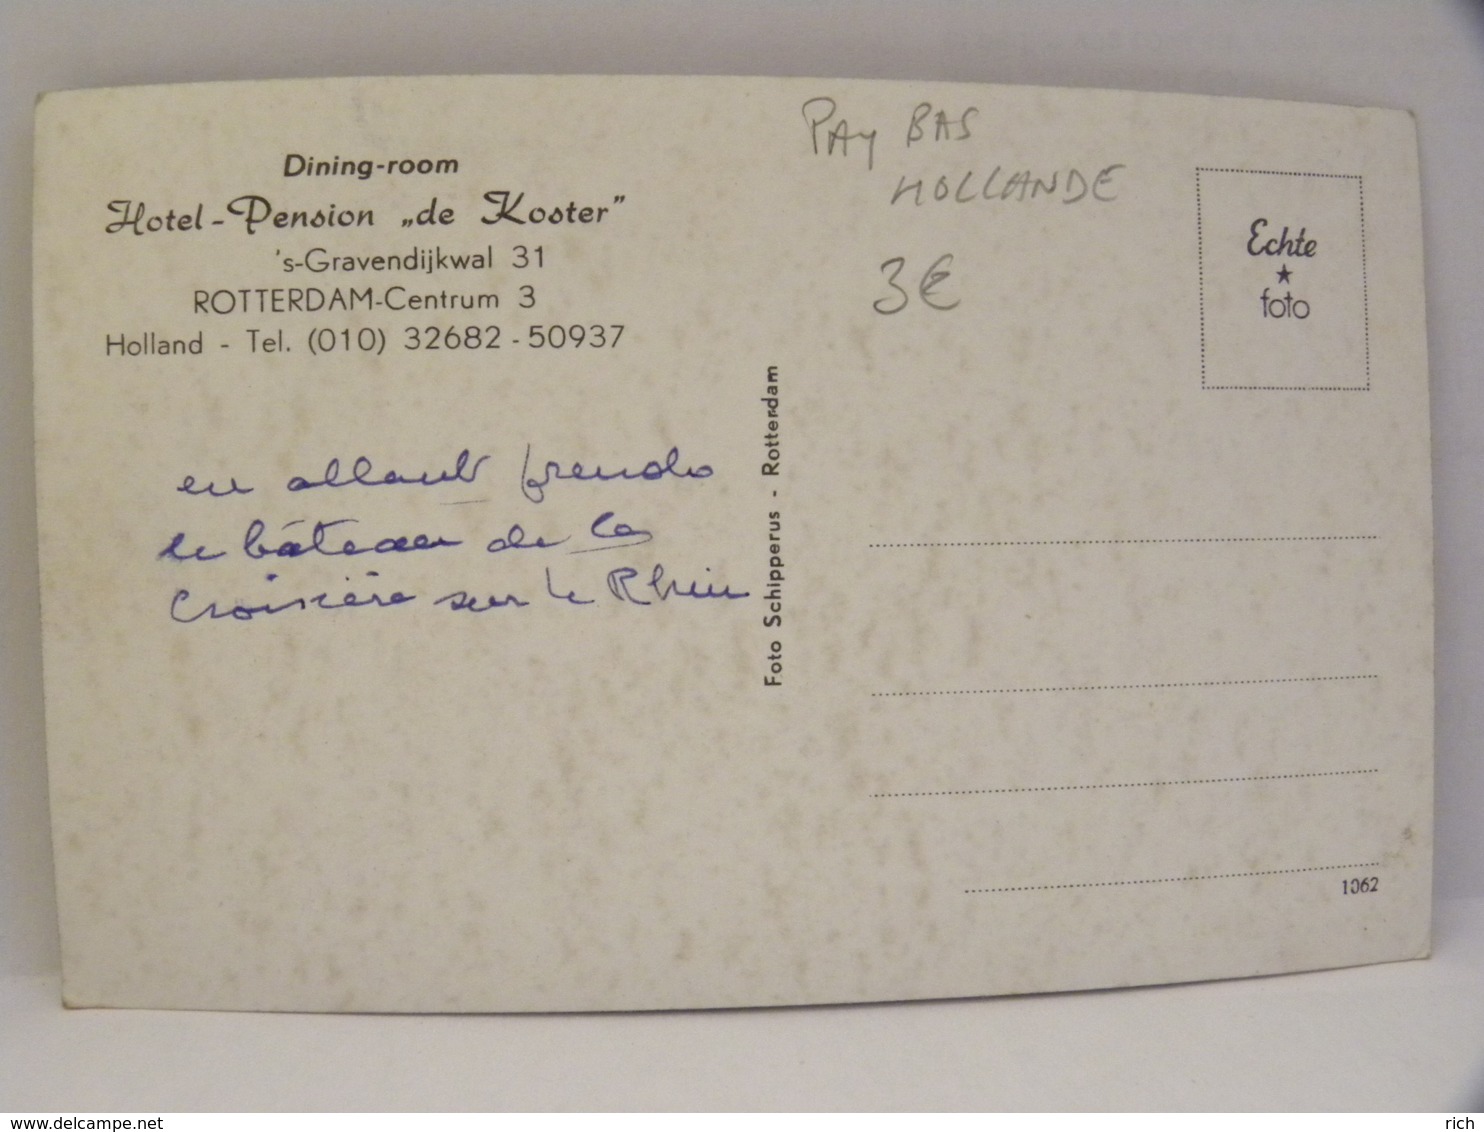 Dining-room
Hotel-Pension „de Koster”
's-Gravendijkwal 31
ROTTERDAM-Centrum 3
Holland - Tel. (010) 32682 - 50937
en allant prendre
le bâteau de la
croisière sur le Rhin
Foto Schipperus - Rotterdam
PAY BAS
HOLLANDE
3€
Echte
★
foto
1062
www.delcampe.net
rich